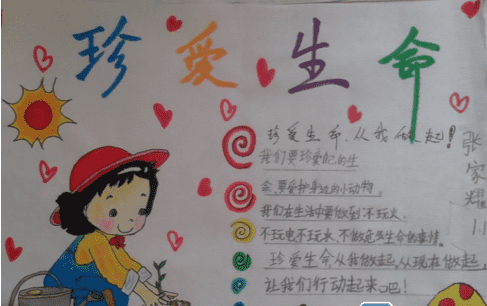 珍爱生命
珍爱生命,从我做起!
我们要珍爱自己的生
命,要爱护身边的小动物,
我们在生活中要做到:不玩火、
不玩电不玩水、不做危害生命的事情。
珍爱生命从我做起,从现在做起,
让我们行动起来吧!
张家耀
1.1